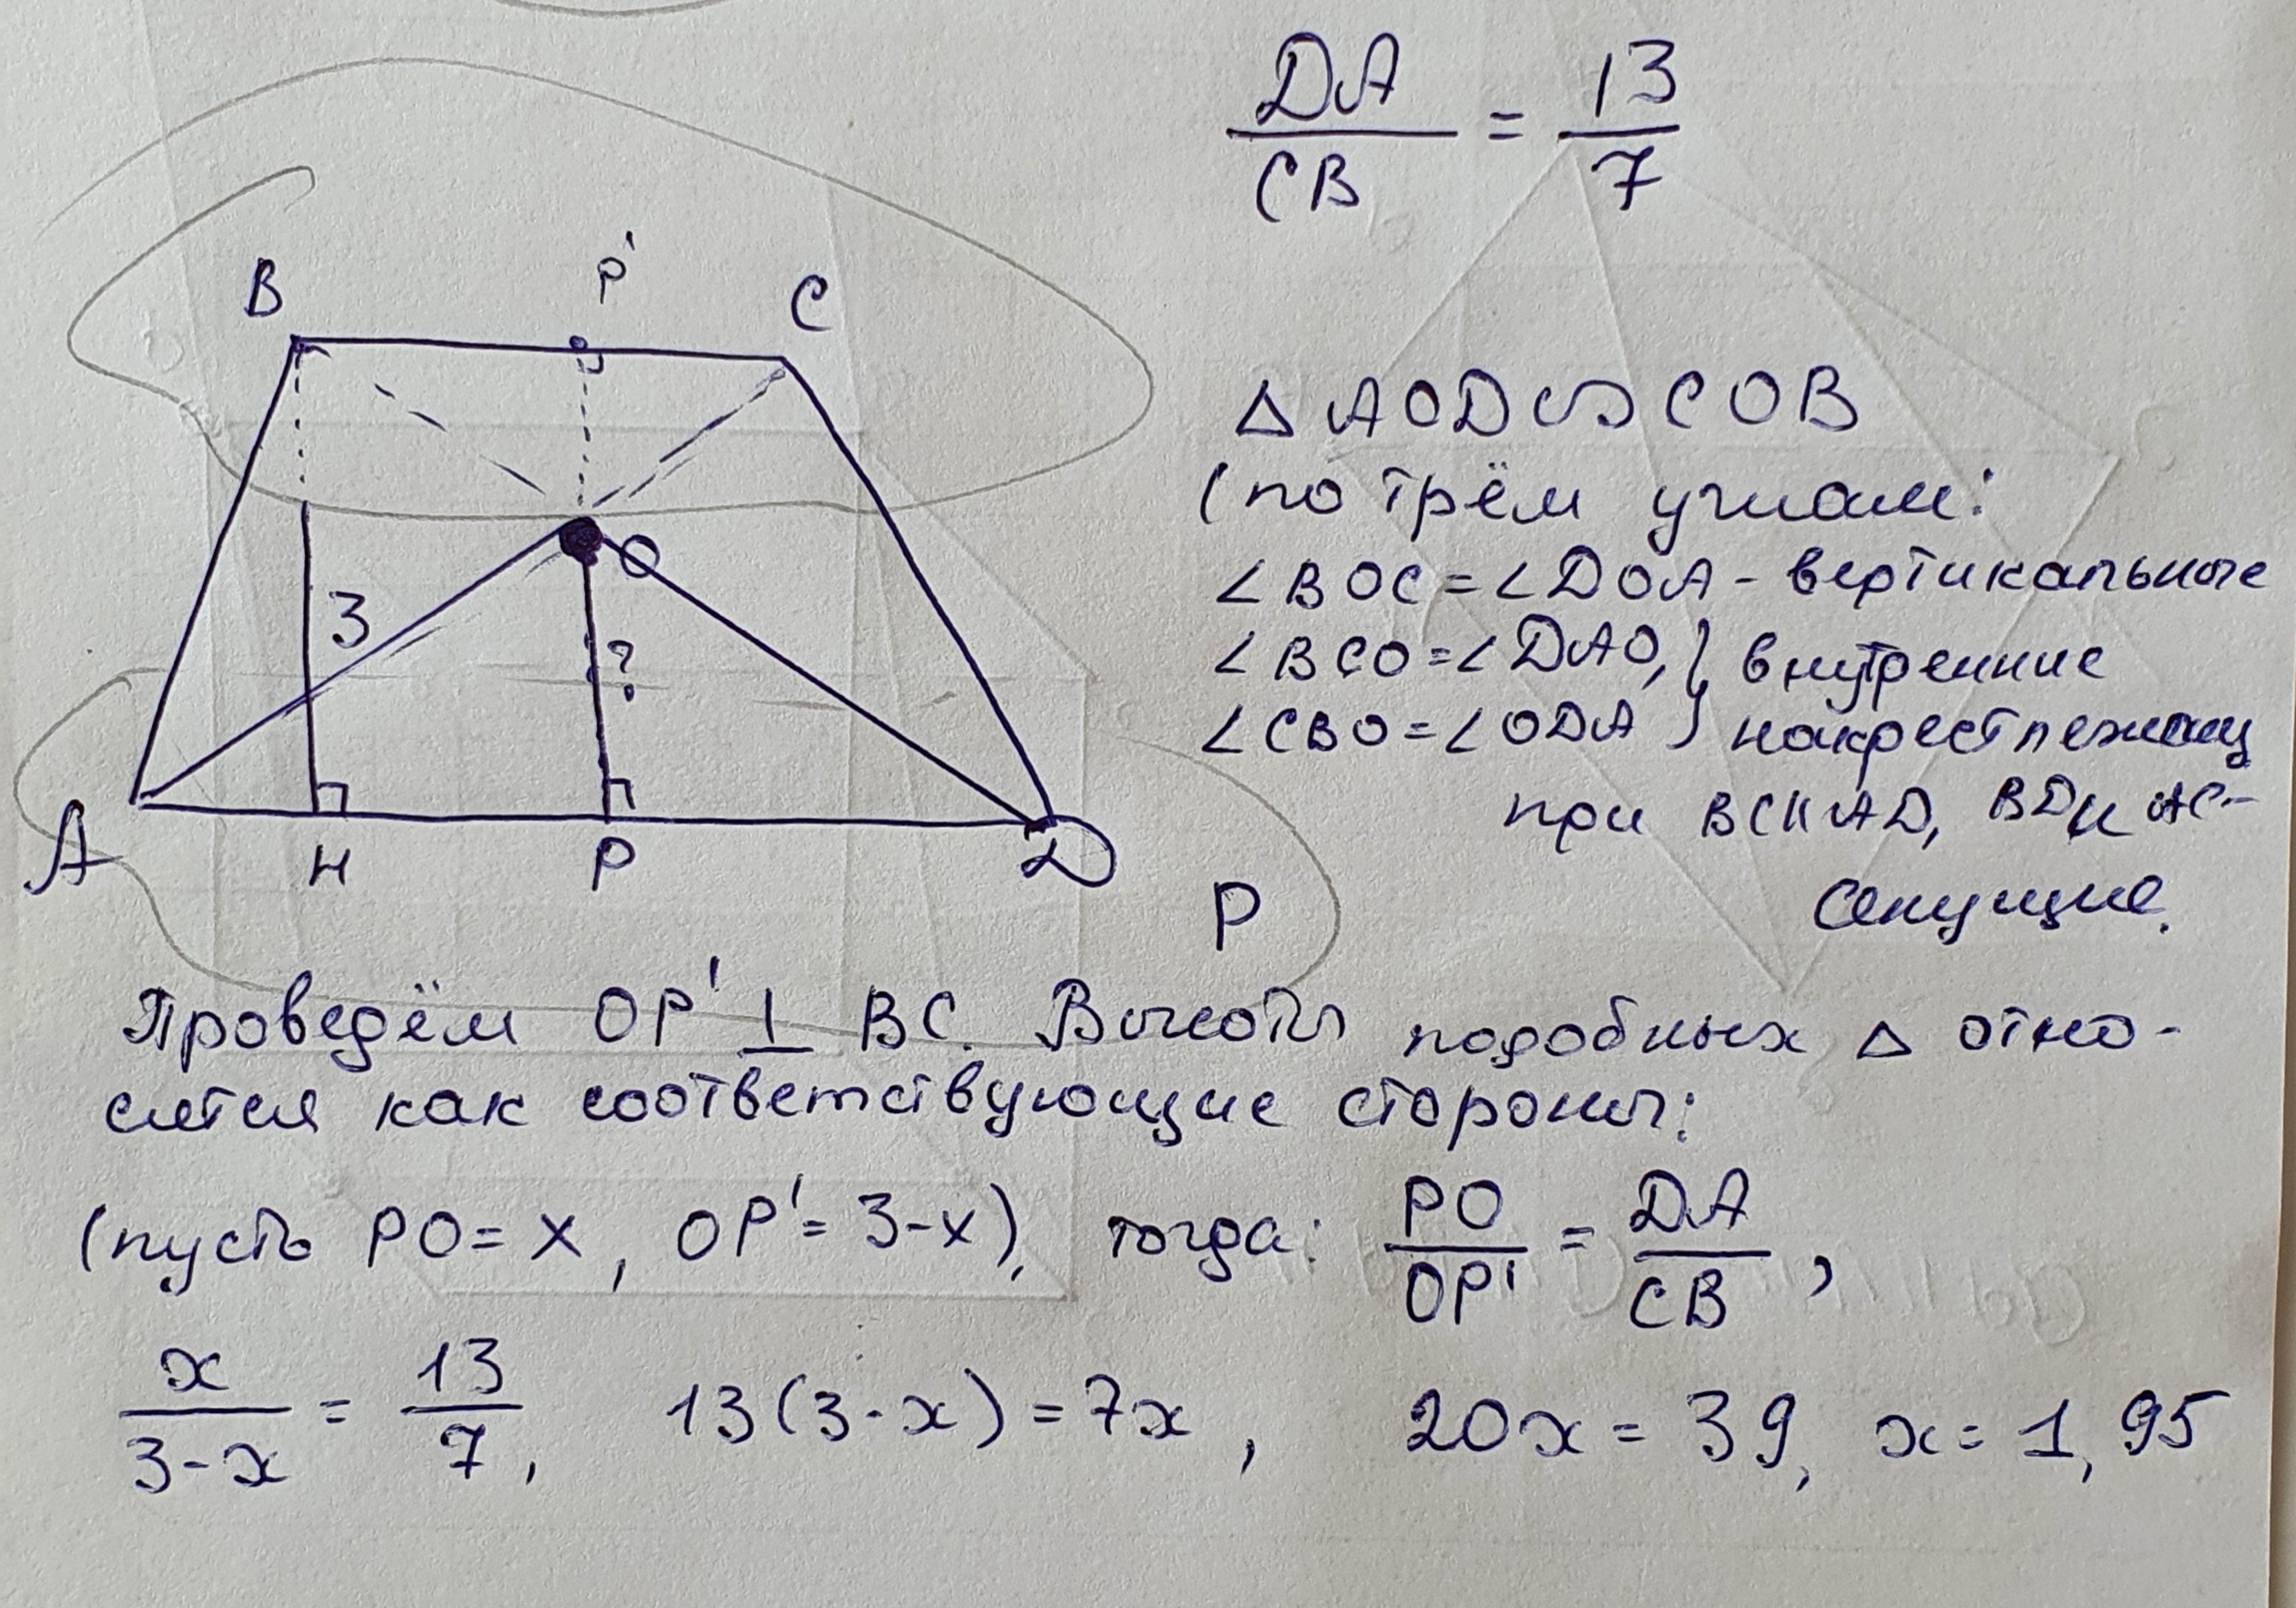 DA/CB = 13/7
B P' C
△AOD ∽ COB
(по трём углам:
∠BOC = ∠DOA - вертикальные
∠BCO = ∠DAO, } внутренние
∠CBO = ∠ODA } накрест лежащ
при BC ∥ AD, BD и AC -
секущие.
O
3
?
A H P D
P
Проведём OP' ⊥ BC. Высоты подобных △ отно-
сятся как соответствующие стороны:
(пусть PO = x, OP' = 3-x), тогда: PO/OP' = DA/CB,
x/(3-x) = 13/7, 13(3-x) = 7x, 20x = 39, x = 1,95